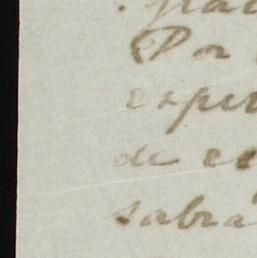 Por
exper
de es
sabrá